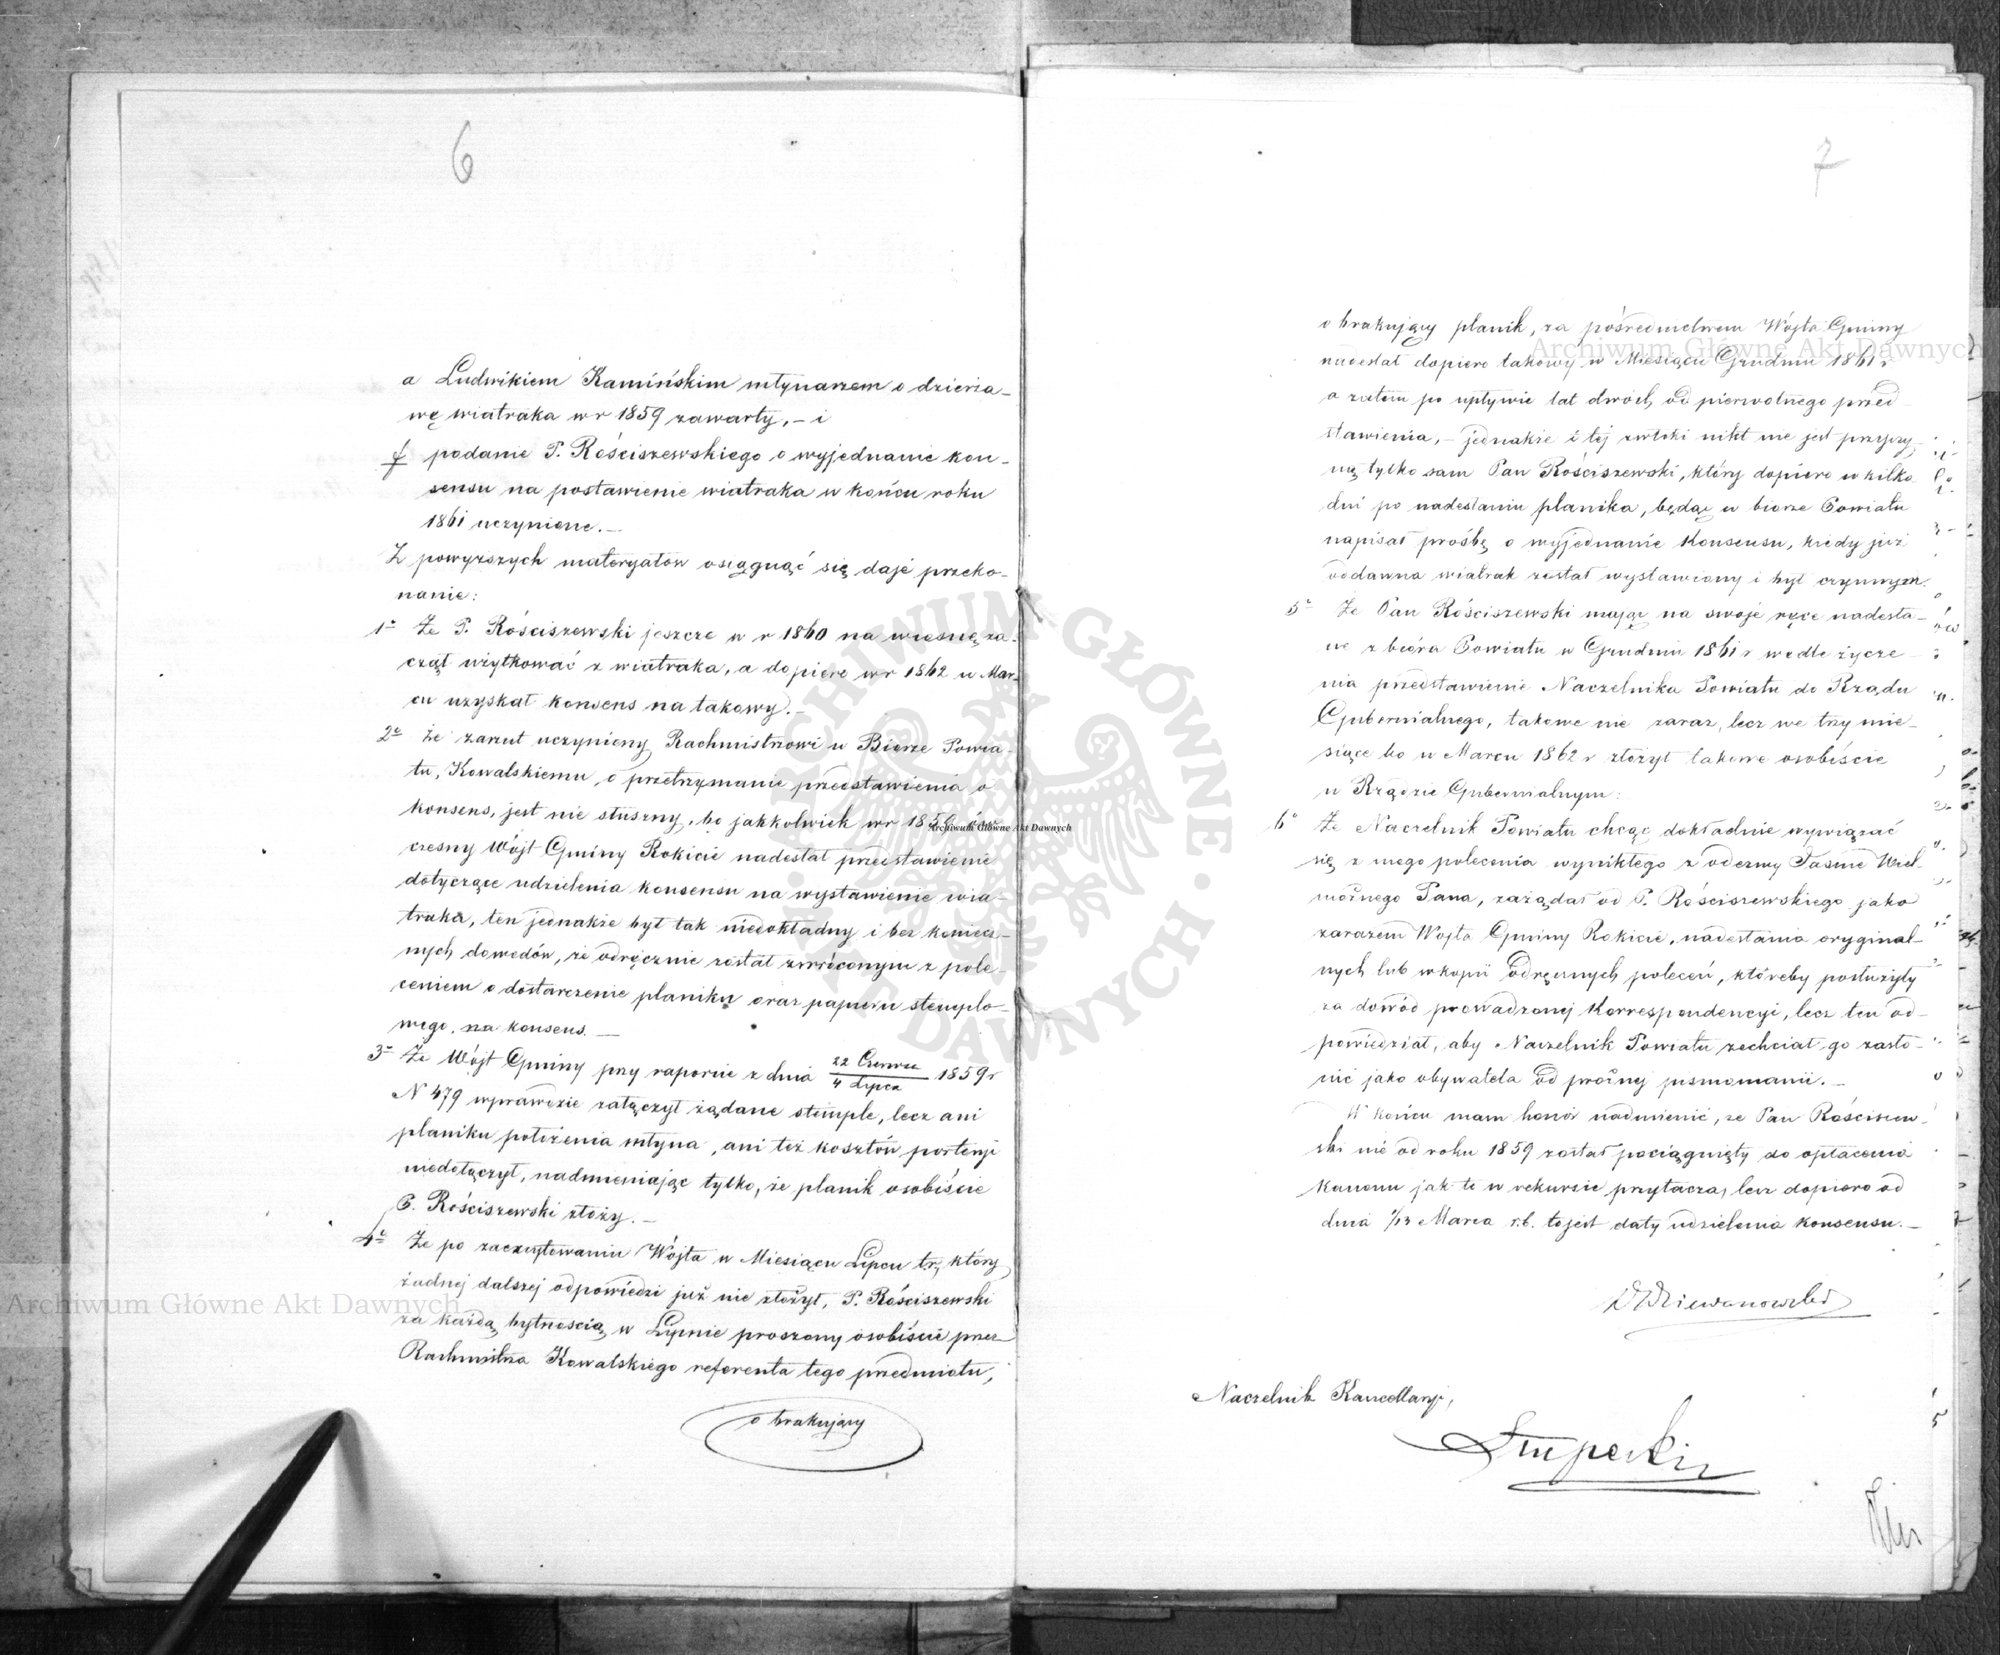 6
a Ludwikiem Kamińskim młynarzem o dzierża-
wę wiatraka w r 1859 zawarty, – i
f podanie P. Rościszewskiego o wyjednanie kon-
sensu na postawienie wiatraka w końcu roku
1861 uczynione. –
Z powyższych materyałów osiągnąć się daje przeko-
nanie:
1o Że P. Rościszewski jeszcze w r 1860 na wiosnę za-
czął użytkować z wiatraka, a dopiero w r 1862 w Mar-
cu uzyskał konsens na takowy. –
2o Że zarzut uczyniony Rachmistrzowi w Biórze Powia-
tu, Kowalskiemu, o przetrzymanie przedstawienia o
konsens, jest nie słuszny, bo jakkolwiek w r 1859 ów-
czesny Wójt Gminy Rokicie nadesłał przedstawienie
dotyczące udzielenia konsensu na wystawienie wia-
traka, ten jednakże był tak niedokładny i bez koniecz-
nych dowodów, że odręcznie został zwróconym z pole-
ceniem o dostarczenie planiku oraz papieru stemplo-
wego na konsens. –
3o Że Wójt Gminy przy raporcie z dnia 22 Czerwca / 4 Lipca 1859 r
N 479 wprawdzie załączył żądane stemple, lecz ani
planiku położenia młyna, ani też kosztów portoryi
niedołączył, nadmieniając tylko, że planik osobiście
P. Rościszewski złoży. –
4o Że po zaczytowaniu Wójta w Miesiącu Lipcu t.r. który
żadnej dalszej odpowiedzi już nie złożył, P. Rościszewski
za każdą bytnością w Lipnie proszony osobiście przez
Rachmistrza Kowalskiego referenta tego przedmiotu,
o brakujący
7
o brakujący planik, za pośrednictwem Wójta Gminy
nadesłał dopiero takowy w Miesiącu Grudniu 1861 r
a zatem po upływie lat dwóch od pierwotnego przed-
stawienia, – jednakże i tej zwłoki nikt nie jest przyczy-
ną tylko sam Pan Rościszewski, który dopiero w kilka
dni po nadesłaniu planika, będąc w biórze Powiatu
napisał prośbę o wyjednanie Konsensu, kiedy już
oddawna wiatrak został wystawiony i był czynnym.
5o Że Pan Rościszewski mając na swoje ręce nadesła-
ne z bióra Powiatu w Grudniu 1861 r wedle życze-
nia przedstawienie Naczelnika Powiatu do Rządu
Gubernialnego, takowe nie zaraz, lecz we trzy mie-
siące bo w Marcu 1862 r złożył takowe osobiście
w Rządzie Gubernialnym:
6o Że Naczelnik Powiatu chcąc dokładnie wywiązać
się z mego polecenia wynikłego z odezwy Jaśnie Wiel-
możnego Pana, zażądał od P. Rościszewskiego jako
zarazem Wójta Gminy Rokicie, nadesłania oryginal-
nych lub w kopii odręcznych poleceń, któreby posłużyły
za dowód prowadzonej Korrespondencyi, lecz ten od-
powiedział, aby Naczelnik Powiatu zechciał go zasło-
nić jako obywatela od próżnej pismomanii. –
W końcu mam honor nadmienić, że Pan Rościszew-
ski nie od roku 1859 został pociągnięty do opłacania
Kanonu jak to w rekursie przytacza, lecz dopiero od
dnia 1/13 Marca r.b. to jest daty udzielenia konsensu. –
Naczelnik Kancellaryi,
Archiwum Główne Akt Dawnych
Archiwum Główne Akt Dawnych
Archiwum Główne Akt Dawnych
ARCHIWUM GŁÓWNE AKT DAWNYCH